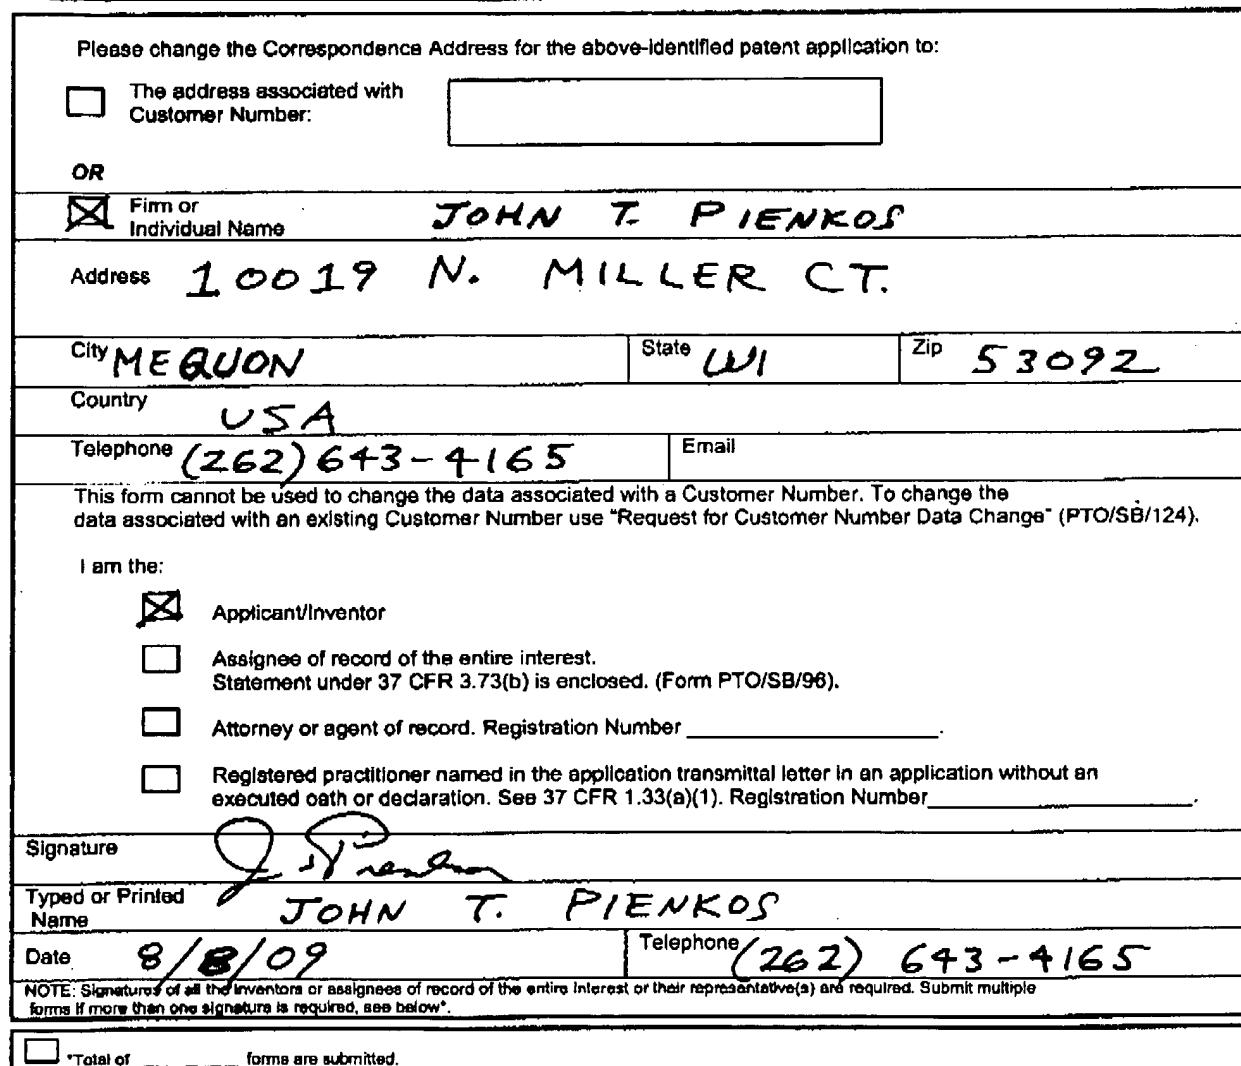 Please change the Correspondence Address for the above-identified patent application to:
The address associated with
Customer Number:
OR
Firm or
Individual Name JOHN T. PIENKOS
Address 10019 N. MILLER CT.
City MEQUON State WI Zip 53092
Country USA
Telephone (262) 643-4165 Email
This form cannot be used to change the data associated with a Customer Number. To change the
data associated with an existing Customer Number use "Request for Customer Number Data Change" (PTO/SB/124).
I am the:
Applicant/Inventor
Assignee of record of the entire interest.
Statement under 37 CFR 3.73(b) is enclosed. (Form PTO/SB/96).
Attorney or agent of record. Registration Number ____________.
Registered practitioner named in the application transmittal letter in an application without an
executed oath or declaration. See 37 CFR 1.33(a)(1). Registration Number____________.
Signature
Typed or Printed
Name JOHN T. PIENKOS
Date 8/8/09 Telephone (262) 643-4165
NOTE: Signatures of all the inventors or assignees of record of the entire interest or their representative(s) are required. Submit multiple
forms if more than one signature is required, see below*.
*Total of ________ forms are submitted.